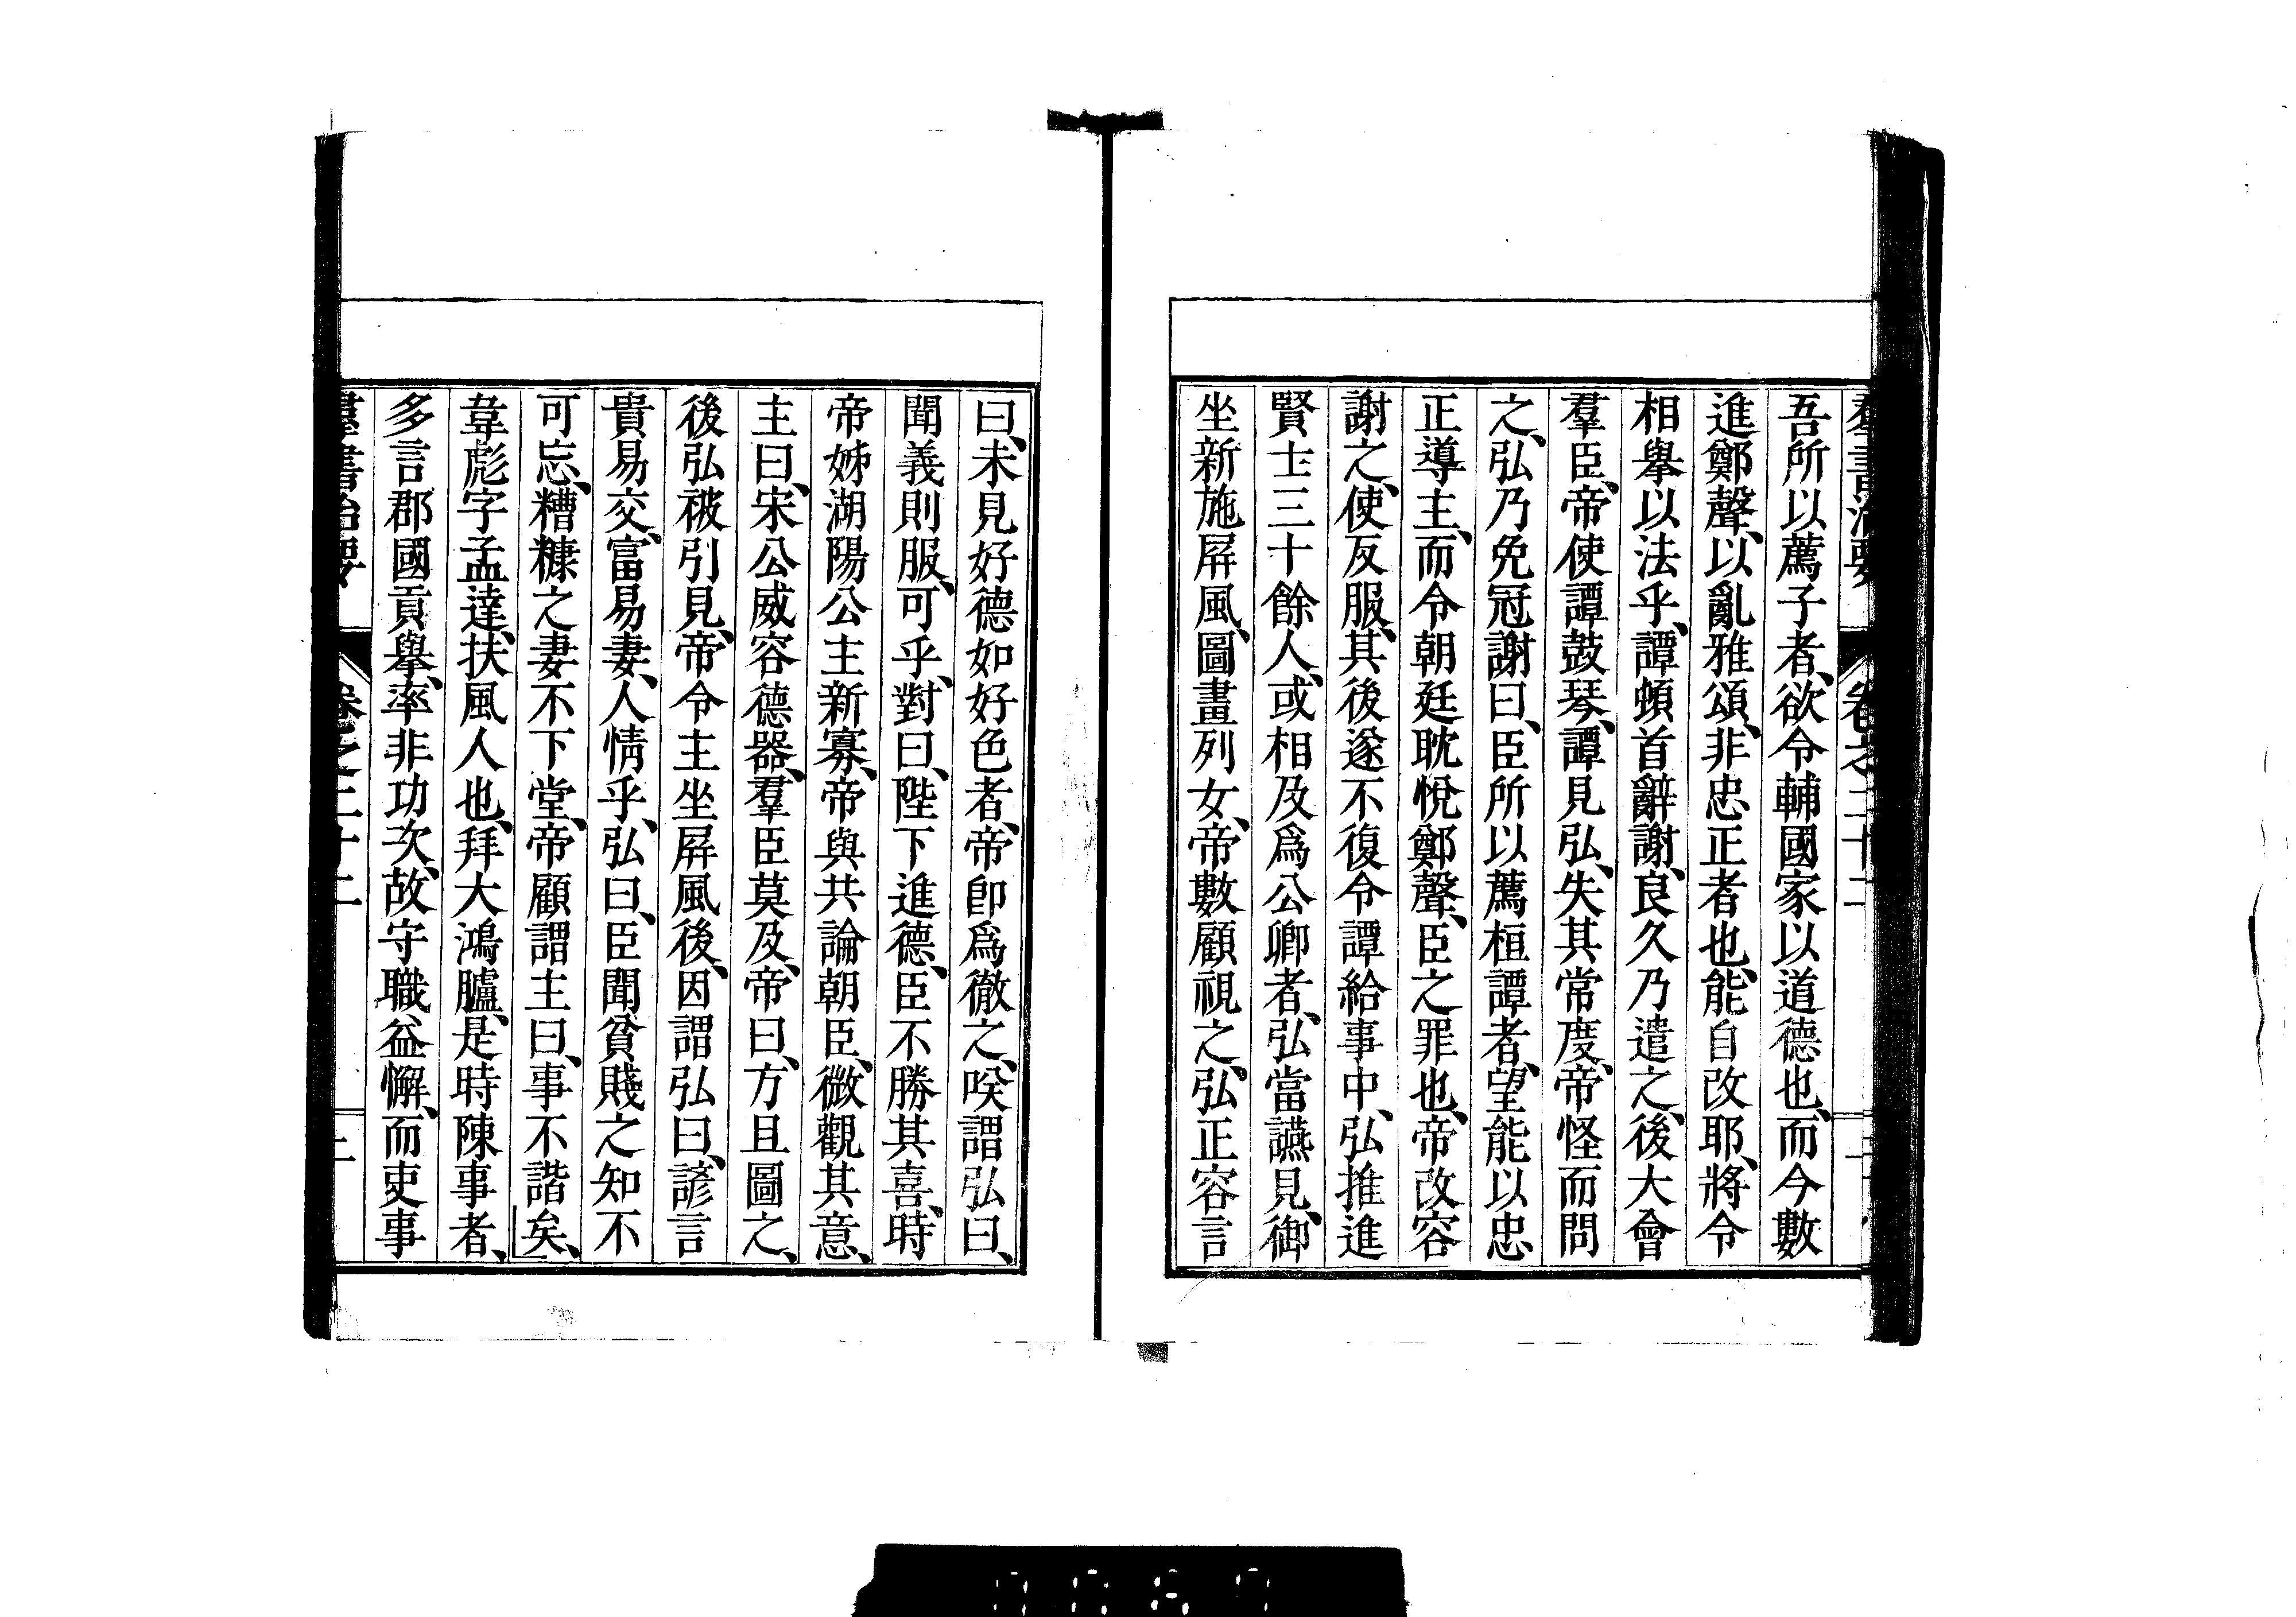 羣書治要 卷之二十二
吾所以薦子者、欲令輔國家以道德也、而今數
進鄭聲、以亂雅頌、非忠正者也、能自改耶、將令
相擧以法乎、譚頓首辭謝、良久乃遣之、後大會
羣臣、帝使譚鼓琴、譚見弘、失其常度、帝怪而問
之、弘乃免冠謝曰、臣所以薦桓譚者、望能以忠
正導主、而令朝廷耽悅鄭聲、臣之罪也、帝改容
謝之、使反服、其後遂不復令譚給事中、弘推進
賢士三十餘人、或相及爲公卿者、弘當讌見、御
坐新施屛風、圖畫列女、帝數顧視之、弘正容言
曰、未見好德如好色者、帝卽爲徹之、唉謂弘曰、
聞義則服、可乎、對曰、陛下進德、臣不勝其喜、時
帝姊湖陽公主新寡、帝與共論朝臣、微觀其意、
主曰、宋公威容德器、羣臣莫及、帝曰、方且圖之、
後弘被引見、帝令主坐屛風後、因謂弘曰、諺言
貴易交、富易妻、人情乎、弘曰、臣聞貧賤之知不
可忘、糟糠之妻不下堂、帝顧謂主曰、事不諧矣、
韋彪字孟達、扶風人也、拜大鴻臚、是時陳事者、
多言郡國貢擧、率非功次、故守職益懈、而吏事
羣書治要 卷之二十二